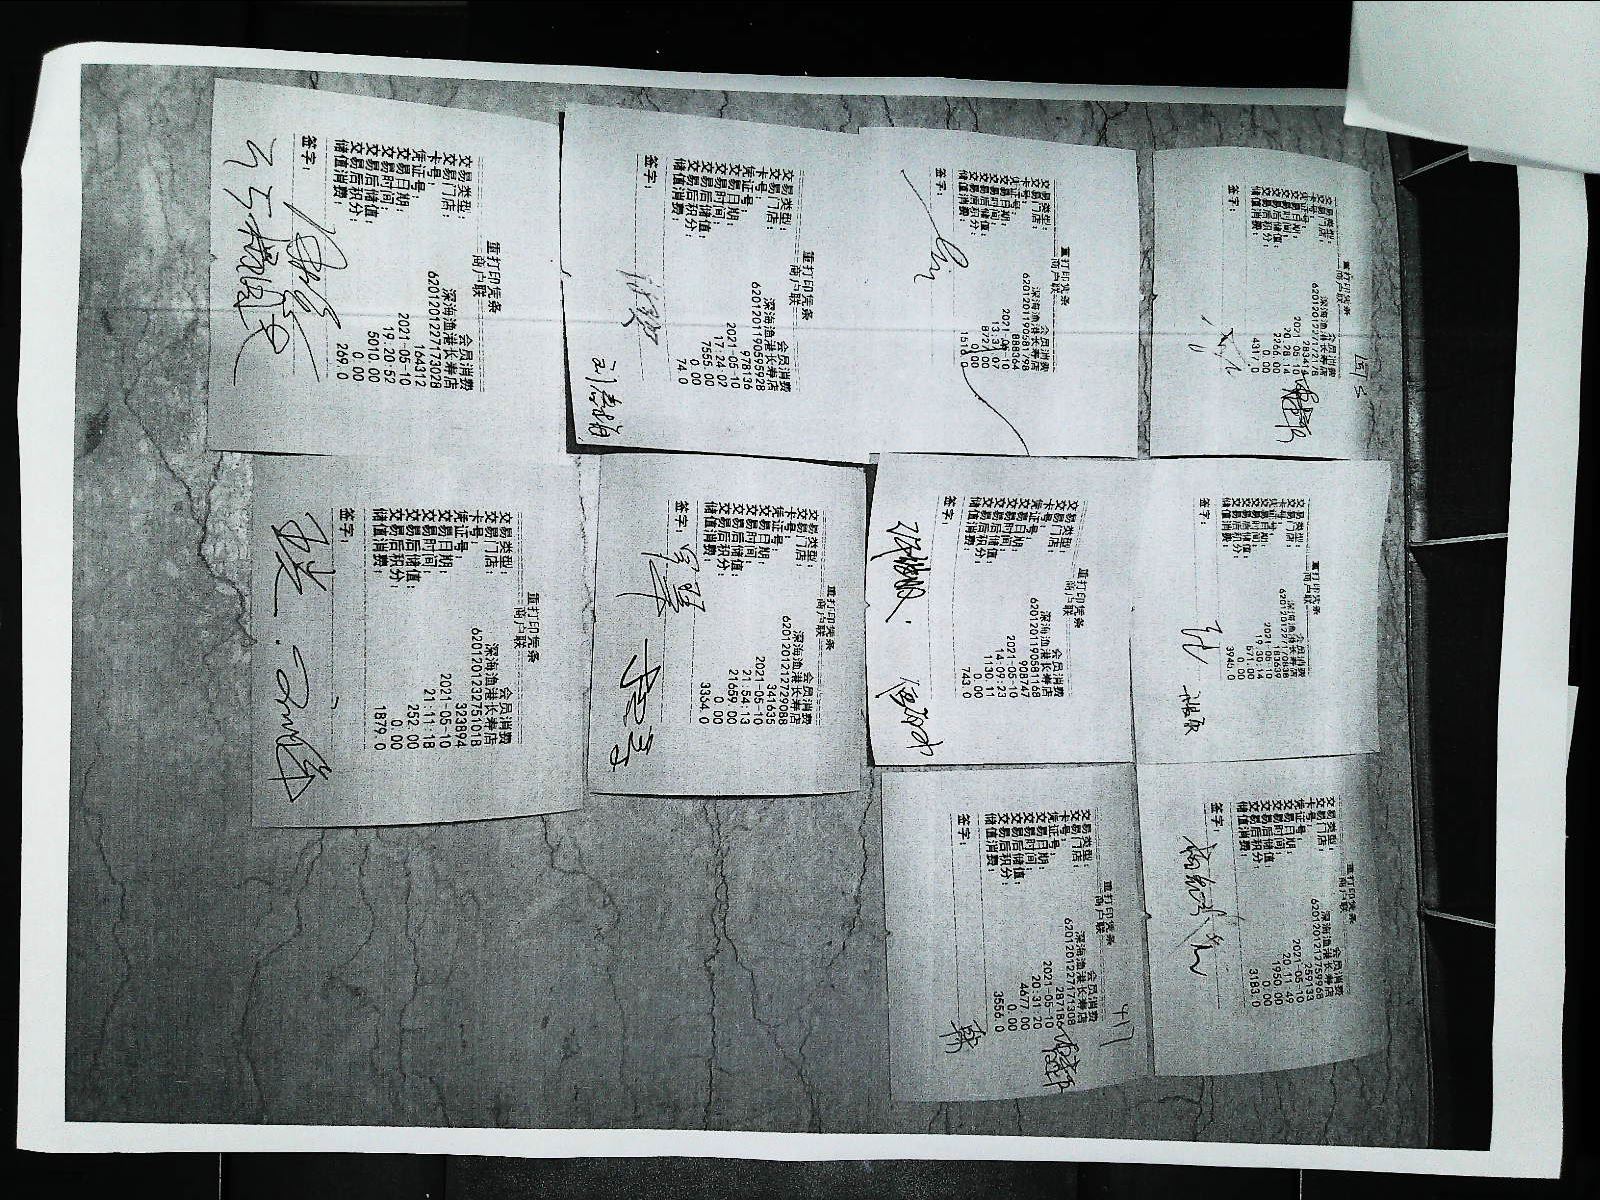 重打印凭条
商户联
交易类型: 会员消费
交易门店: 深海渔港长寿店
卡号:
凭证号:
交易日期: 2021-05-10
交易时间: 20:28:14
交易后储值: 2266.00
交易后积分: 0.00
储值消费: 4317.0
签字:
重打印凭条
商户联
交易类型: 会员消费
交易门店: 深海渔港长寿店
卡号:
凭证号: 183639
交易日期: 2021-05-10
交易时间: 19:30:14
交易后储值: 571.00
交易后积分: 0.00
储值消费: 3940.0
签字:
重打印凭条
商户联
交易类型: 会员消费
交易门店: 深海渔港长寿店
卡号: 6201201212759968
凭证号: 259133
交易日期: 2021-05-10
交易时间: 20:11:49
交易后储值: 1950.00
交易后积分: 0.00
储值消费: 3183.0
签字:
重打印凭条
商户联
交易类型: 会员消费
交易门店: 深海渔港长寿店
卡号: 6201201190581798
凭证号: 888364
交易日期: 2021-05-10
交易时间: 13:31:07
交易后储值: 8727.00
交易后积分: 0.00
储值消费: 1516.0
签字:
重打印凭条
商户联
交易类型: 会员消费
交易门店: 深海渔港长寿店
卡号: 6201201190581168
凭证号: 908747
交易日期: 2021-05-10
交易时间: 14:09:23
交易后储值: 1130.11
交易后积分: 0.00
储值消费: 743.0
签字:
417
重打印凭条
商户联
交易类型: 会员消费
交易门店: 深海渔港长寿店
卡号: 6201201227171308
凭证号: 287186
交易日期: 2021-05-10
交易时间: 20:31:20
交易后储值: 4677.00
交易后积分: 0.00
储值消费: 3556.0
签字:
重打印凭条
商户联
交易类型: 会员消费
交易门店: 深海渔港长寿店
卡号: 6201201190595928
凭证号: 978136
交易日期: 2021-05-10
交易时间: 17:24:07
交易后储值: 7555.00
交易后积分: 0.00
储值消费: 74.0
签字:
重打印凭条
商户联
交易类型: 会员消费
交易门店: 深海渔港长寿店
卡号: 6201201212729088
凭证号: 341635
交易日期: 2021-05-10
交易时间: 21:54:13
交易后储值: 21659.00
交易后积分: 0.00
储值消费: 3354.0
签字:
重打印凭条
商户联
交易类型: 会员消费
交易门店: 深海渔港长寿店
卡号: 6201201227173028
凭证号: 164312
交易日期: 2021-05-10
交易时间: 19:20:52
交易后储值: 5010.00
交易后积分: 0.00
储值消费: 269.0
签字:
重打印凭条
商户联
交易类型: 会员消费
交易门店: 深海渔港长寿店
卡号: 6201201232751018
凭证号: 323894
交易日期: 2021-05-10
交易时间: 21:11:18
交易后储值: 252.00
交易后积分: 0.00
储值消费: 1879.0
签字: